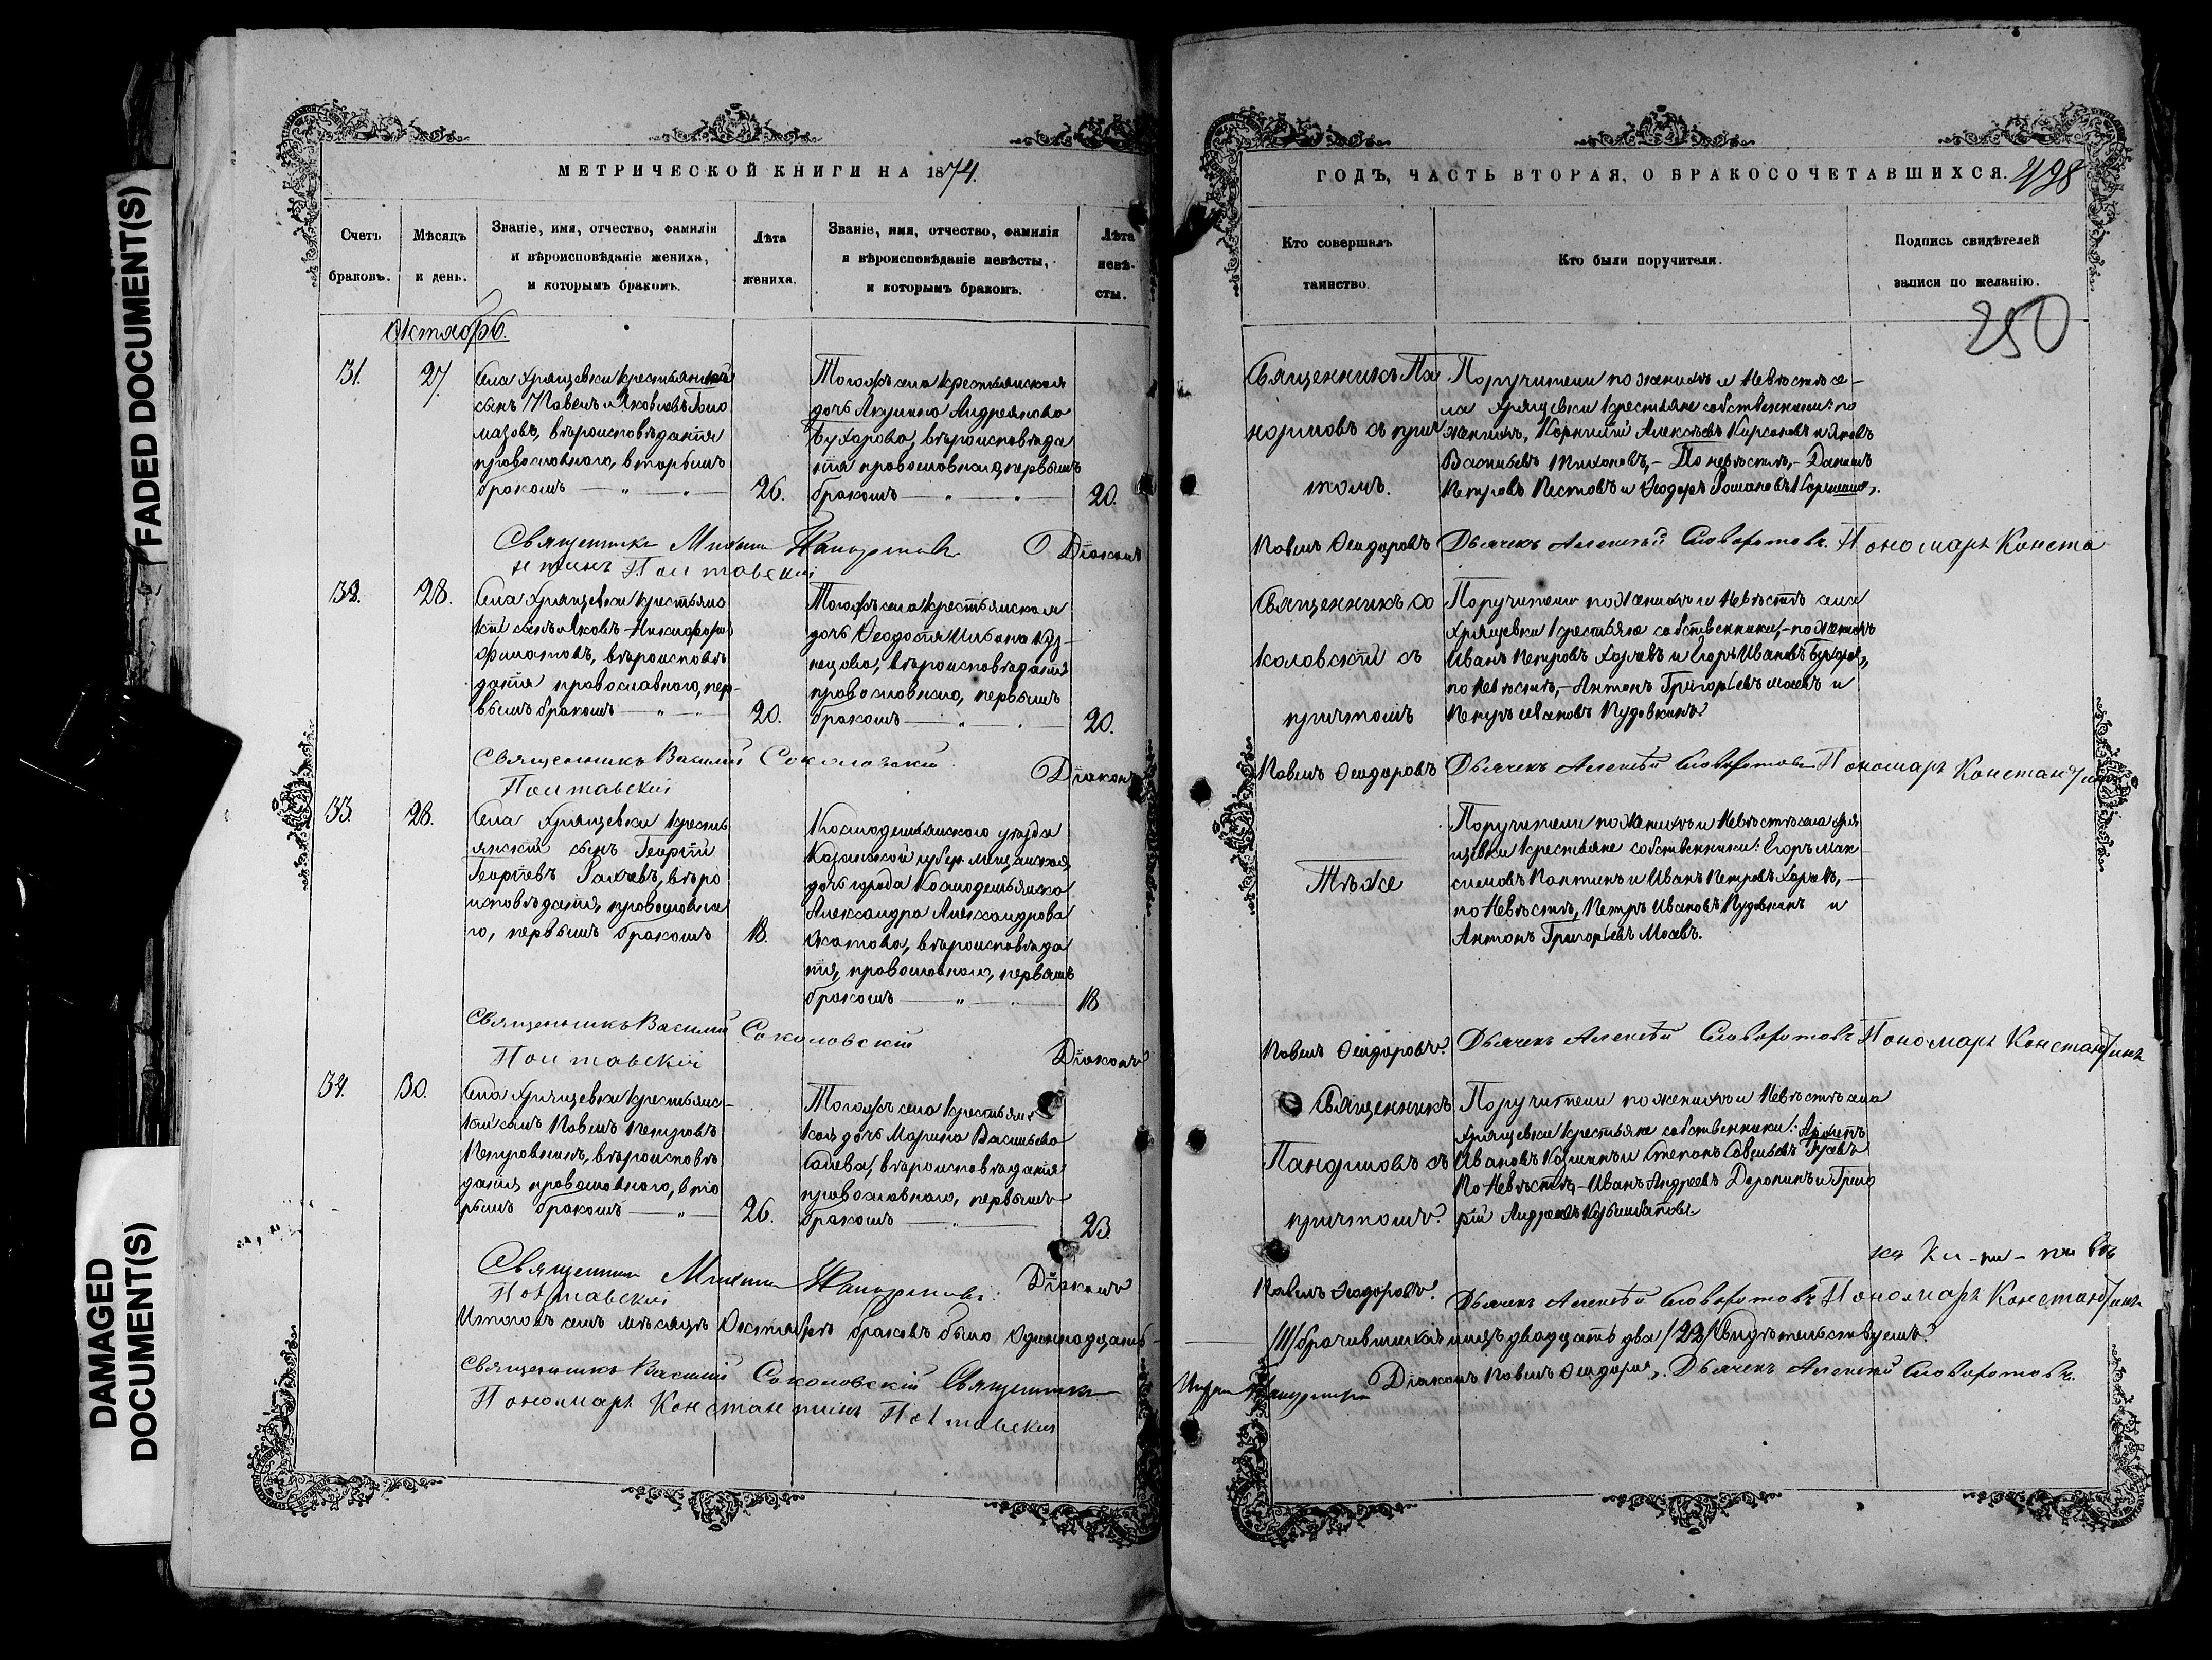 FADED DOCUMENT(S)
DAMAGED
DOCUMENT(S)
МЕТРИЧЕСКОЙ КНИГИ НА 1874.
Счетъ
браковъ.
Мѣсяцъ
и день.
Званіе, имя, отчество, фамилія
и вѣроисповѣданіе жениха,
и которымъ бракомъ.
Лѣта
жениха.
Званіе, имя, отчество, фамилія
и вѣроисповѣданіе невѣсты,
и которымъ бракомъ.
Лѣта
невѣ-
сты.
Октябрь.
31.
27.
Села Хрящевки крестьянскій
сынъ Павелъ Яковлевъ
вѣроисповѣданія
православнаго, вторымъ
бракомъ
26.
Тогожъ села крестьянская
дочь Акулина Андреянова
Бухарова, вѣроисповѣда
нія православнаго, первымъ
бракомъ
20.
Священникъ Діаконъ
Полтавскій
32.
28.
Села Хрящевки крестьянс
кій сынъ Яковъ Никифоровъ
Филатовъ, вѣроисповѣ
данія православнаго, пер-
вымъ бракомъ
20.
Тогожъ села крестьянская
дочь Ѳеодосія Ильина Куз-
нецова, вѣроисповѣданія
православнаго, первымъ
бракомъ
20.
Священникъ Василій Соколовскій Діаконъ
Полтавскій
33.
28.
Села Хрящевки кресть
янскій сынъ Георгій
Георгіевъ вѣро
исповѣданія, православна
го, первымъ бракомъ
18.
Козмодемьянского уѣзда
Казанской губер. мѣщанская
дочь города Козмодемьянска
Александра Александрова
вѣроисповѣда
нія, православнаго, первымъ
бракомъ
18
Священникъ Василій Соколовскій Діаконъ
Полтавскій
34.
30.
Села Хрящевки крестьянс-
кій сынъ Павелъ Петровъ
вѣроисповѣ
данія православнаго, вто
рымъ бракомъ
26.
Тогожъ села крестьянс
кая дочь Марина Васильева
вѣроисповѣданія
православнаго, первымъ
бракомъ
23.
Священникъ Діаконъ
Полтавскій
Итого въ семъ мѣсяцѣ Октябрѣ браковъ было одиннадцать
Священникъ Василій Соколовскій Священникъ
Пономарь Константинъ Полтавскій
ГОДЪ, ЧАСТЬ ВТОРАЯ, О БРАКОСОЧЕТАВШИХСЯ. 498
Кто совершалъ
таинство.
Кто были поручители.
Подпись свидѣтелей
записи по желанію.
250
Священникъ Па
нормовъ съ прич
томъ.
Поручители по женихѣ и невѣстѣ се-
ла Хрящевки крестьяне собственники: по
женихѣ, Корнилій Алексѣевъ Кирсановъ и Яковъ
Васильевъ Тихоновъ, – По невѣстѣ, – Данилъ
Петровъ Пестовъ и Ѳеодоръ Романовъ
Павелъ Ѳеодоровъ Дьячекъ Алексѣй Словоротовъ. Пономарь Конста
нтинъ
Священникъ Со
коловскій съ
причтомъ
Поручители по женихѣ и невѣстѣ села
Хрящевки крестьяне собственники, – по женихѣ
Иванъ Петровъ и Егоръ Ивановъ
по невѣстѣ, – Антонъ Григорьевъ и
Петръ Ивановъ Пудовкинъ
Павелъ Ѳеодоровъ Дьячекъ Алексѣй Словоротовъ Пономарь Константинъ
Тѣже
Поручители по женихѣ и невѣстѣ села Хря
щевки крестьяне собственники: Егоръ Мак-
симовъ и Иванъ Петровъ
по невѣстѣ, Петръ Ивановъ Пудовкинъ и
Антонъ Григорьевъ
Павелъ Ѳеодоровъ Дьячекъ Алексѣй Словоротовъ Пономарь Константинъ
Священникъ
Панормовъ съ
причтомъ
Поручители по женихѣ и невѣстѣ села
Хрящевки крестьяне собственники: Архипъ
Ивановъ и Степанъ Савельевъ Гусевъ
По невѣстѣ, – Иванъ Андреевъ Доронинъ и Григо
рій Андреевъ
Павелъ Ѳеодоровъ. Дьячекъ Алексѣй Словоротовъ Пономарь Константинъ
/11/ брачившихся лицъ двадцать два /22/ Свидѣтельствуемъ
Діаконъ Павелъ Ѳеодоровъ, Дьячекъ Алексѣй Словоротовъ.